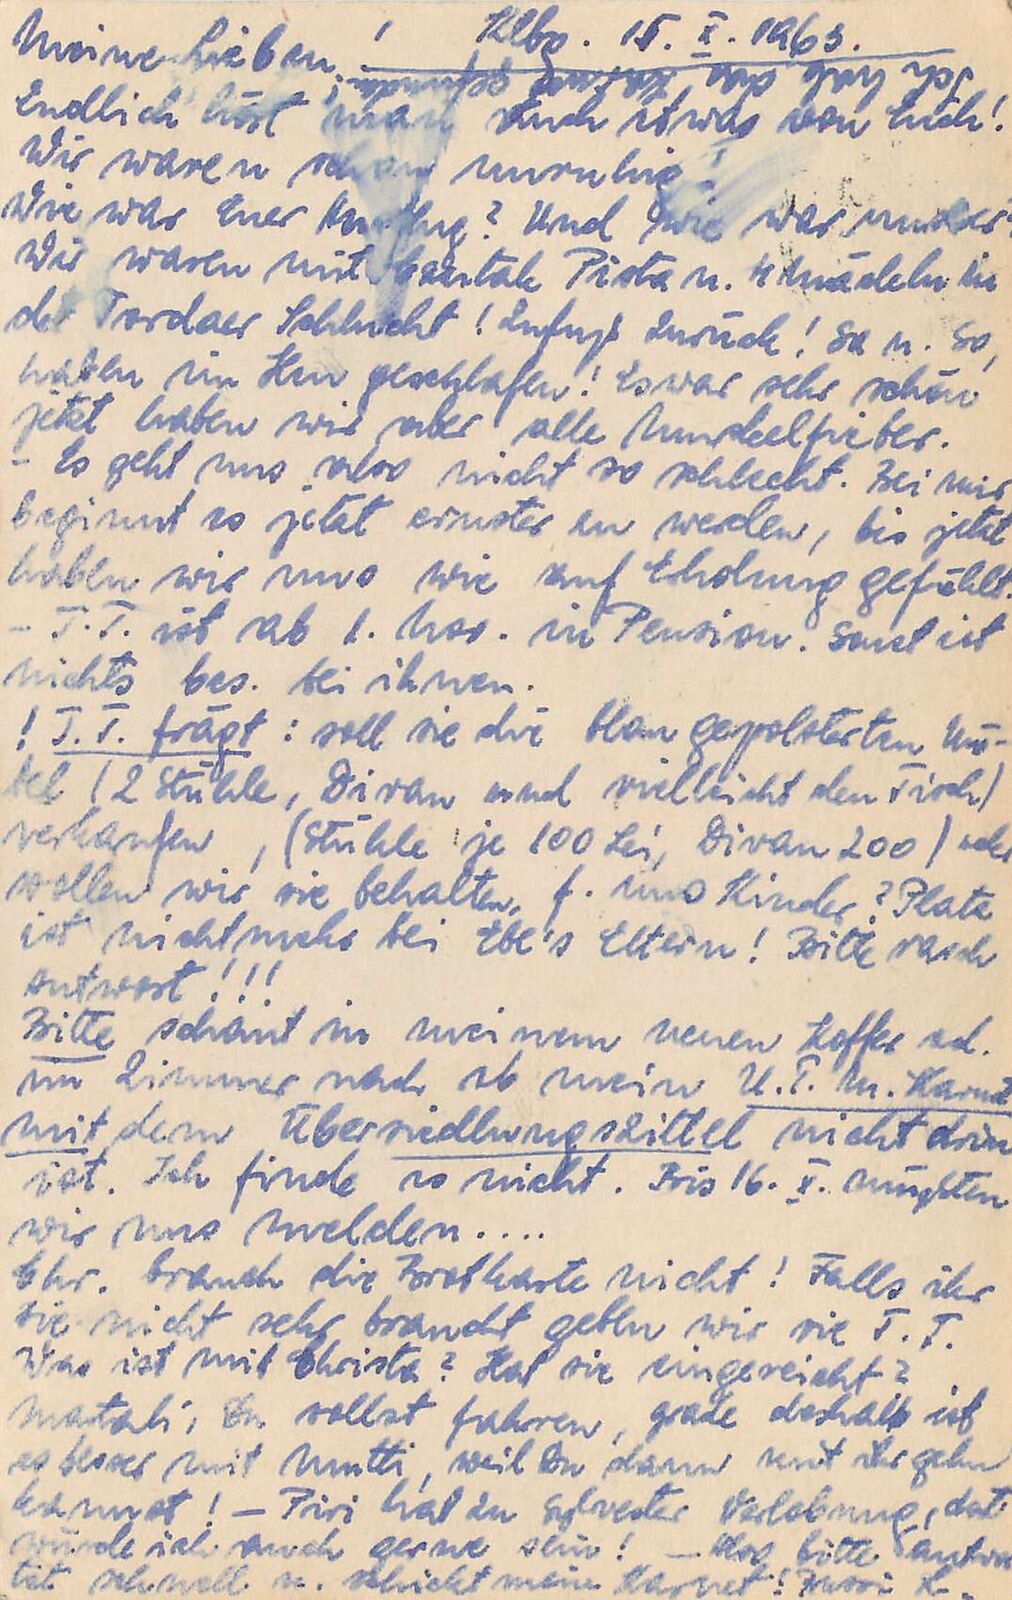 Klbg. 15. X. 1963.
Meine Lieben!
Ich hab den Koffer
Endlich hört man auch etwas von Euch!
Wir waren schon unruhig!
Wie war Euer Ausflug? Und wie war unser?
Wir waren mit Pista u. 4 Mädeln in
der Tordaer Schlucht! Zufuß zurück! Sa u. So,
haben im Heu geschlafen! Es war sehr schön
jetzt haben wir aber alle Muskelfieber.
- Es geht uns also nicht so schlecht. Bei mir
beginnt es jetzt ernster zu werden, bis jetzt
haben wir uns wie auf Erholung gefühlt.
- T.T. ist ab 1. Nov. in Pension. Sonst ist
nichts bes. bei ihnen.
! T.T. frägt: soll sie die blau gepolsterten Mö-
bel (2 Stühle, Divan und vielleicht den Tisch)
verkaufen, (Stühle je 100 Lei, Divan 200) oder
wollen wir sie behalten, f. uns Kinder? Platz
ist nicht mehr bei Ebe's Eltern! Bitte rasch
Antwort!!!
Bitte schaut in meinem neuen Koffer od.
im Zimmer nach ob mein U.T.M. Karnet
mit dem Übersiedlungszittel nicht drin
ist. Ich finde es nicht. Bis 16. X. müßten
wir uns melden....
Ehr. brauch die Brotkarte nicht! Falls ihr
sie nicht sehr braucht geben wir sie T.T.
Was ist mit Christa? Hat sie eingereicht?
Du sollst fahren, grade deshalb ist
es besser mit Mutti, weil Du dann mit ihr gehn
kannst! - Piri hat zu Sylvester Verlobung, da
würde ich auch gerne sein! - Also bitte antwor
tet schnell u. schickt mein Karnet!